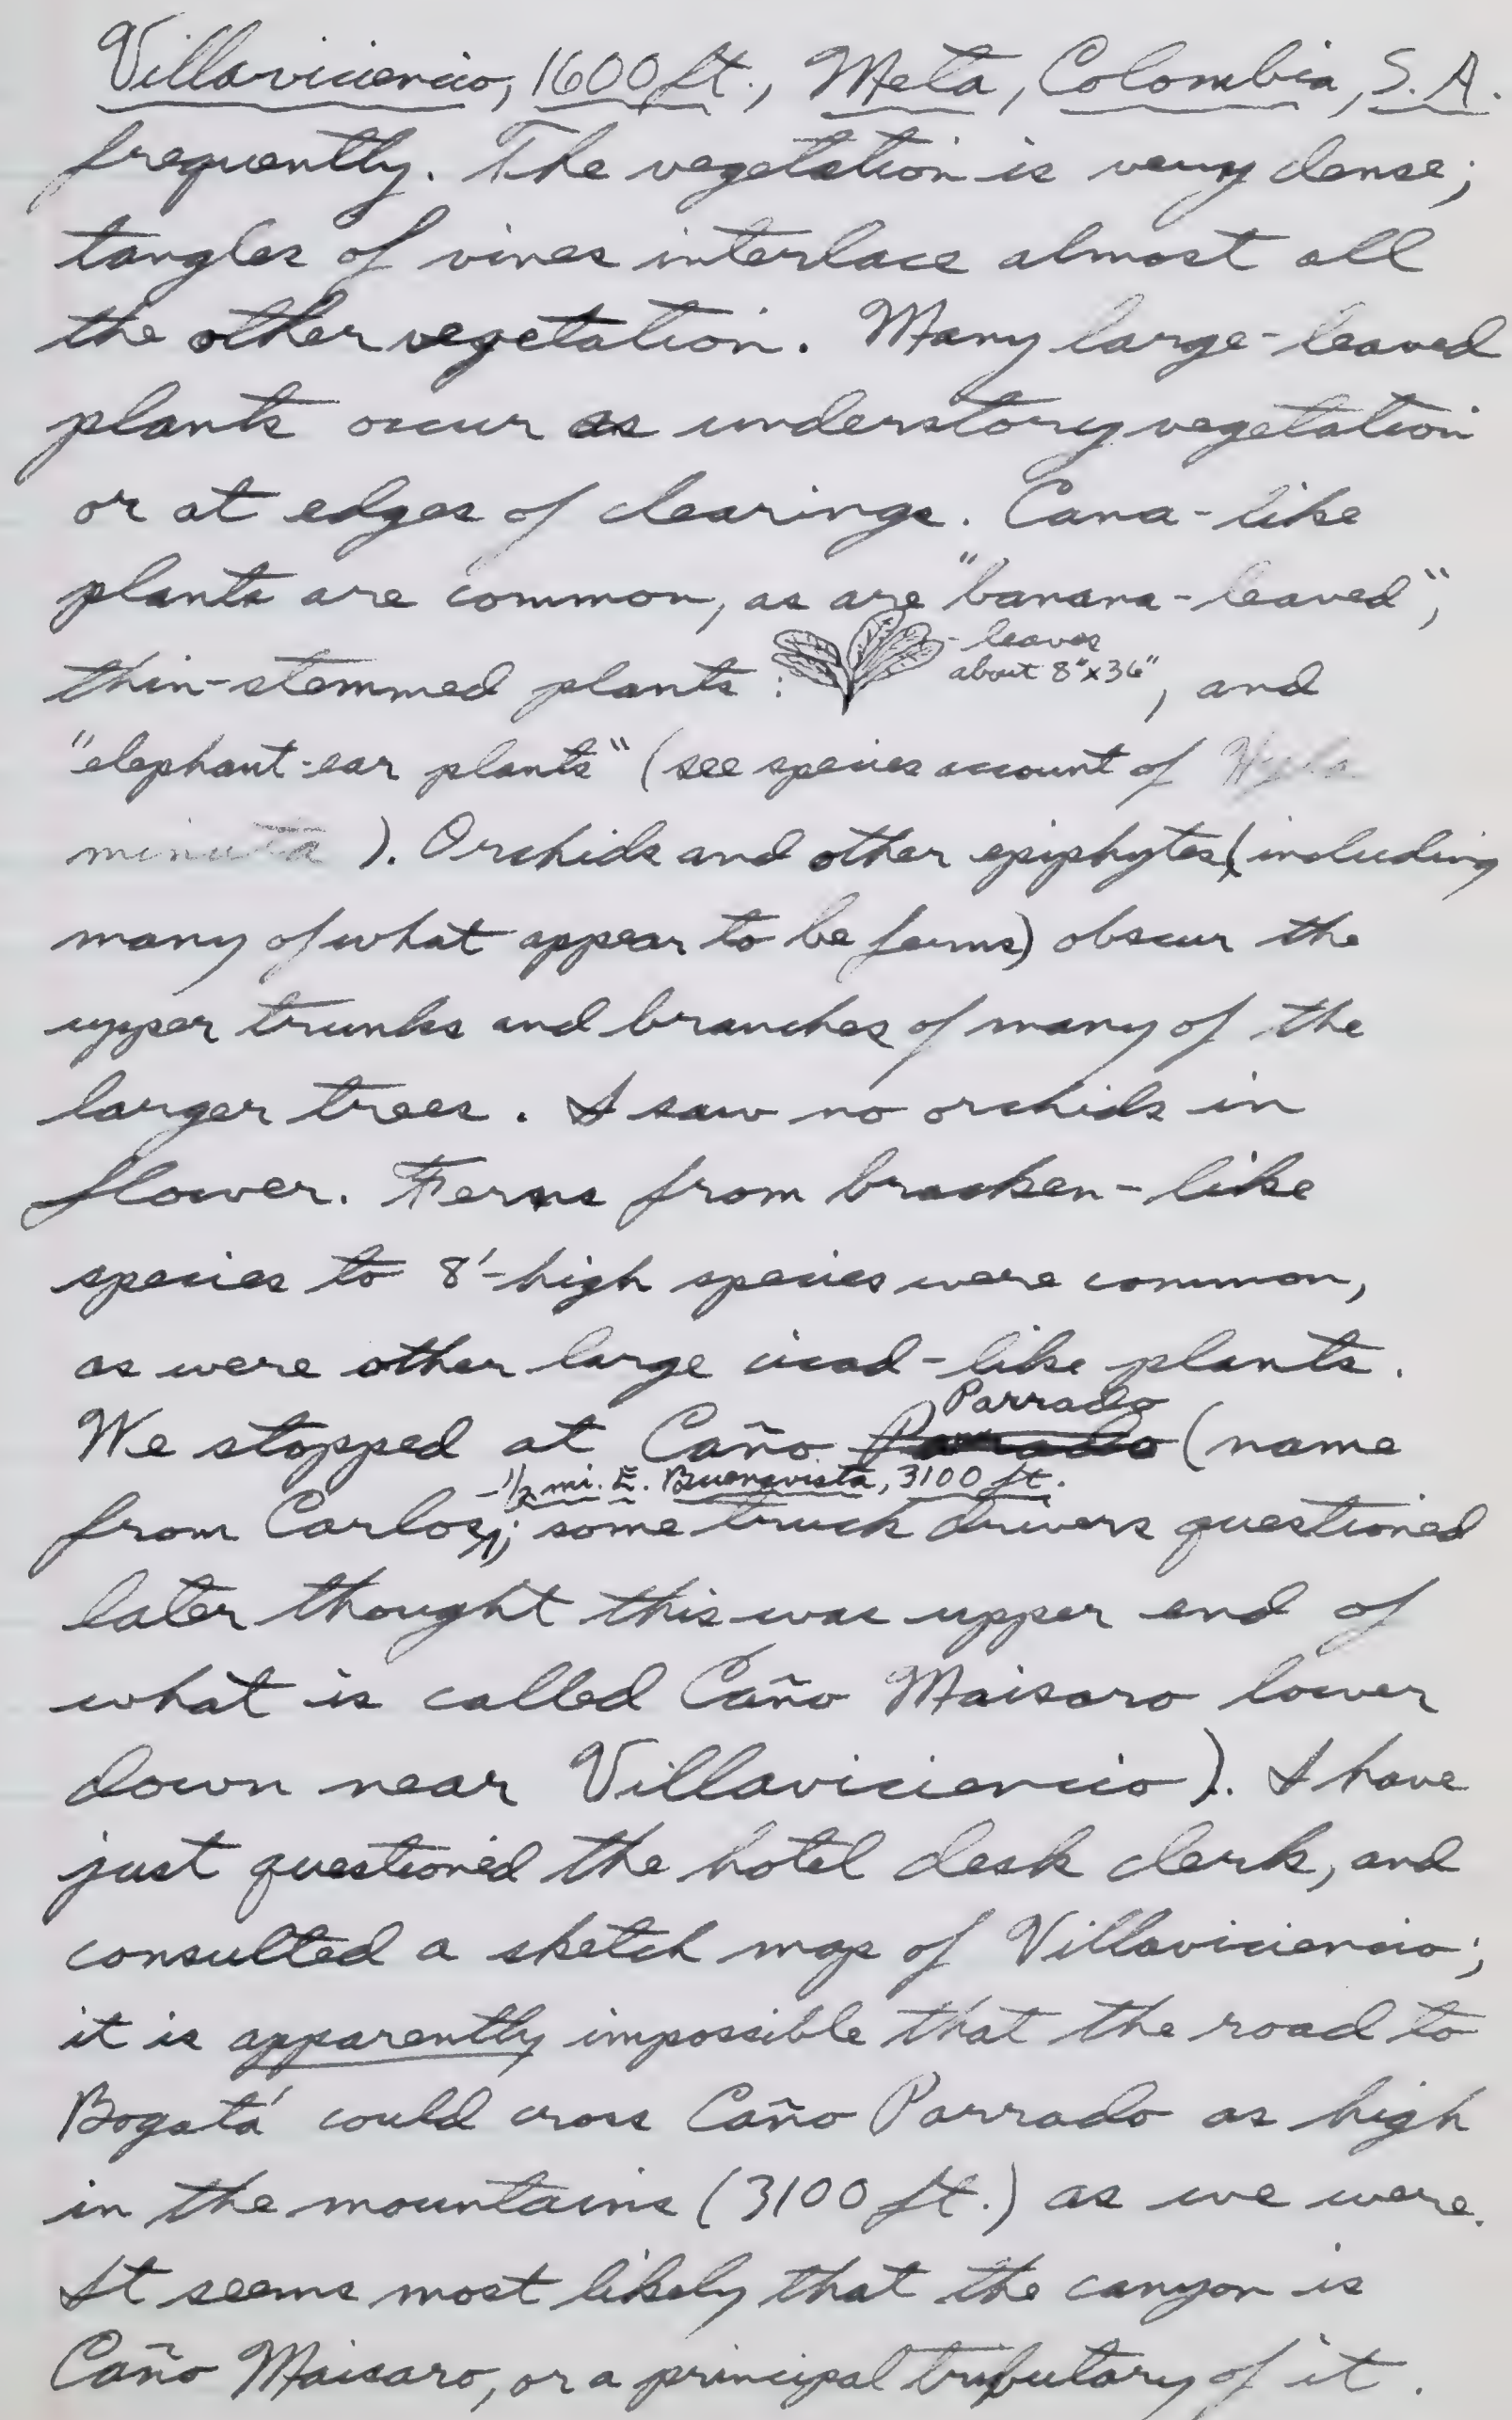 Villaviciencio, 1600 ft., Meta, Colombia, S. A.
frequently. The vegetation is very dense;
tangles of vines interlace almost all
the other vegetation. Many large-leaved
plants occur as understory vegetation
or at edges of clearings. Cana-like
plants are common, as are "banana-leaved",
thin-stemmed plants: - leaves
about 8"x36", and
"elephant-ear plants" (see species account of Hyla
minuta ). Orchids and other epiphytes (including
many of what appear to be ferns) obscur the
upper trunks and branches of many of the
larger trees. I saw no orchids in
flower. Ferns from bracken-like
species to 8'-high species were common,
as were other large cicad-like plants.
Parrado
We stopped at Caño (name
- 1/2 mi. E. Buenavista, 3100 ft.
from Carlos); some truck drivers questioned
later thought this was upper end of
what is called Caño Maisaro lower
down near Villaviciencio). I have
just questioned the hotel desk clerk, and
consulted a sketch map of Villaviciencio;
it is apparently impossible that the road to
Bogatá could cross Caño Parrado as high
in the mountains (3100 ft.) as we were.
It seems most likely that the canyon is
Caño Maisaro, or a principal tributary of it.